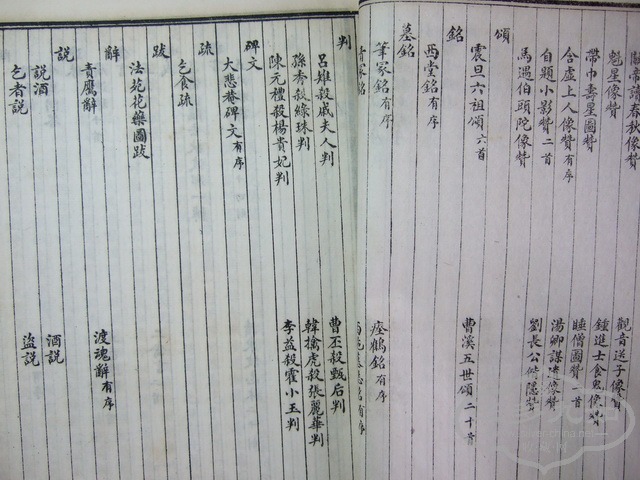 魁星像贊
觀音送子像贊
帶巾壽星圖贊
鍾進士食鬼像贊
合虛上人像贊有序
睡僧圖贊一首
自題小影贊二首
馬遇伯頭陀像贊
頌
震旦六祖頌六首
曹溪五世頌二十首
銘
西堂銘有序
墓銘
筆冢銘有序
瘞鶴銘有序
判
呂雉殺戚夫人判
曹丕殺甄后判
孫秀殺綠珠判
韓擒虎殺張麗華判
陳元禮殺楊貴妃判
李益殺霍小玉判
碑文
大悲菴碑文有序
疏
乞食疏
跋
法苑花藥圖跋
辭
責鷹辭
渡魂辭有序
説
説酒
酒説
乞者説
盜説